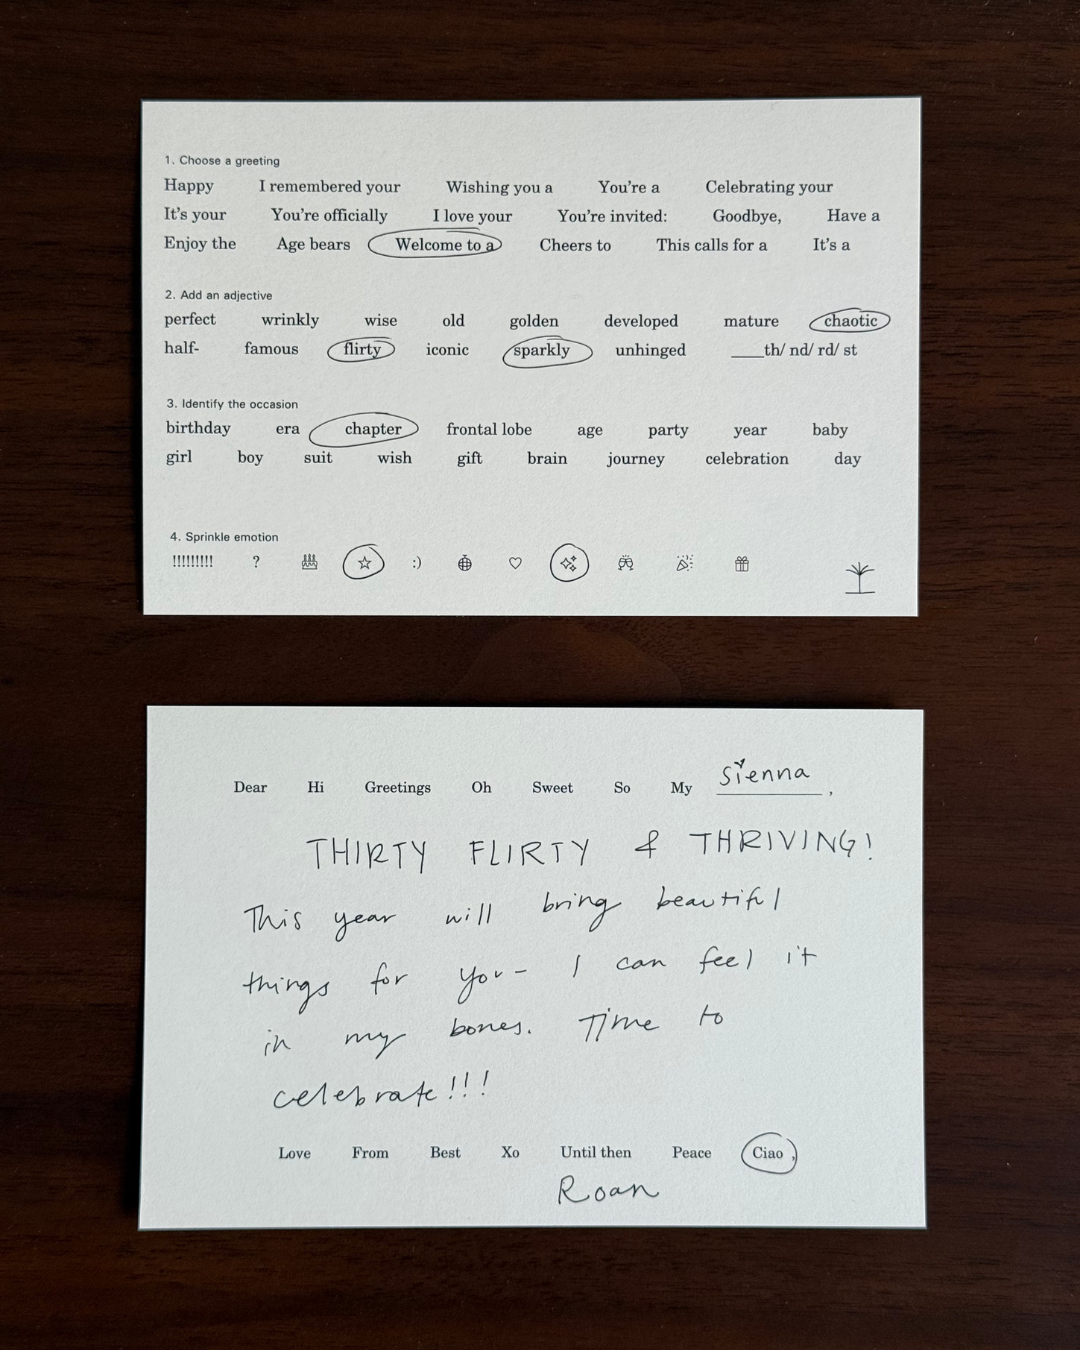 1. Choose a greeting
Happy I remembered your Wishing you a You're a Celebrating your
It's your You're officially I love your You're invited: Goodbye, Have a
Enjoy the Age bears Welcome to a Cheers to This calls for a It's a
2. Add an adjective
perfect wrinkly wise old golden developed mature chaotic
half- famous flirty iconic sparkly unhinged ___th/ nd/ rd/ st
3. Identify the occasion
birthday era chapter frontal lobe age party year baby
girl boy suit wish gift brain journey celebration day
4. Sprinkle emotion
!!!!!!!!! ? :)
Dear Hi Greetings Oh Sweet So My Sienna,
THIRTY FLIRTY & THRIVING!
This year will bring beautiful
things for you- I can feel it
in my bones. Time to
celebrate!!!
Love From Best Xo Until then Peace Ciao,
Roan